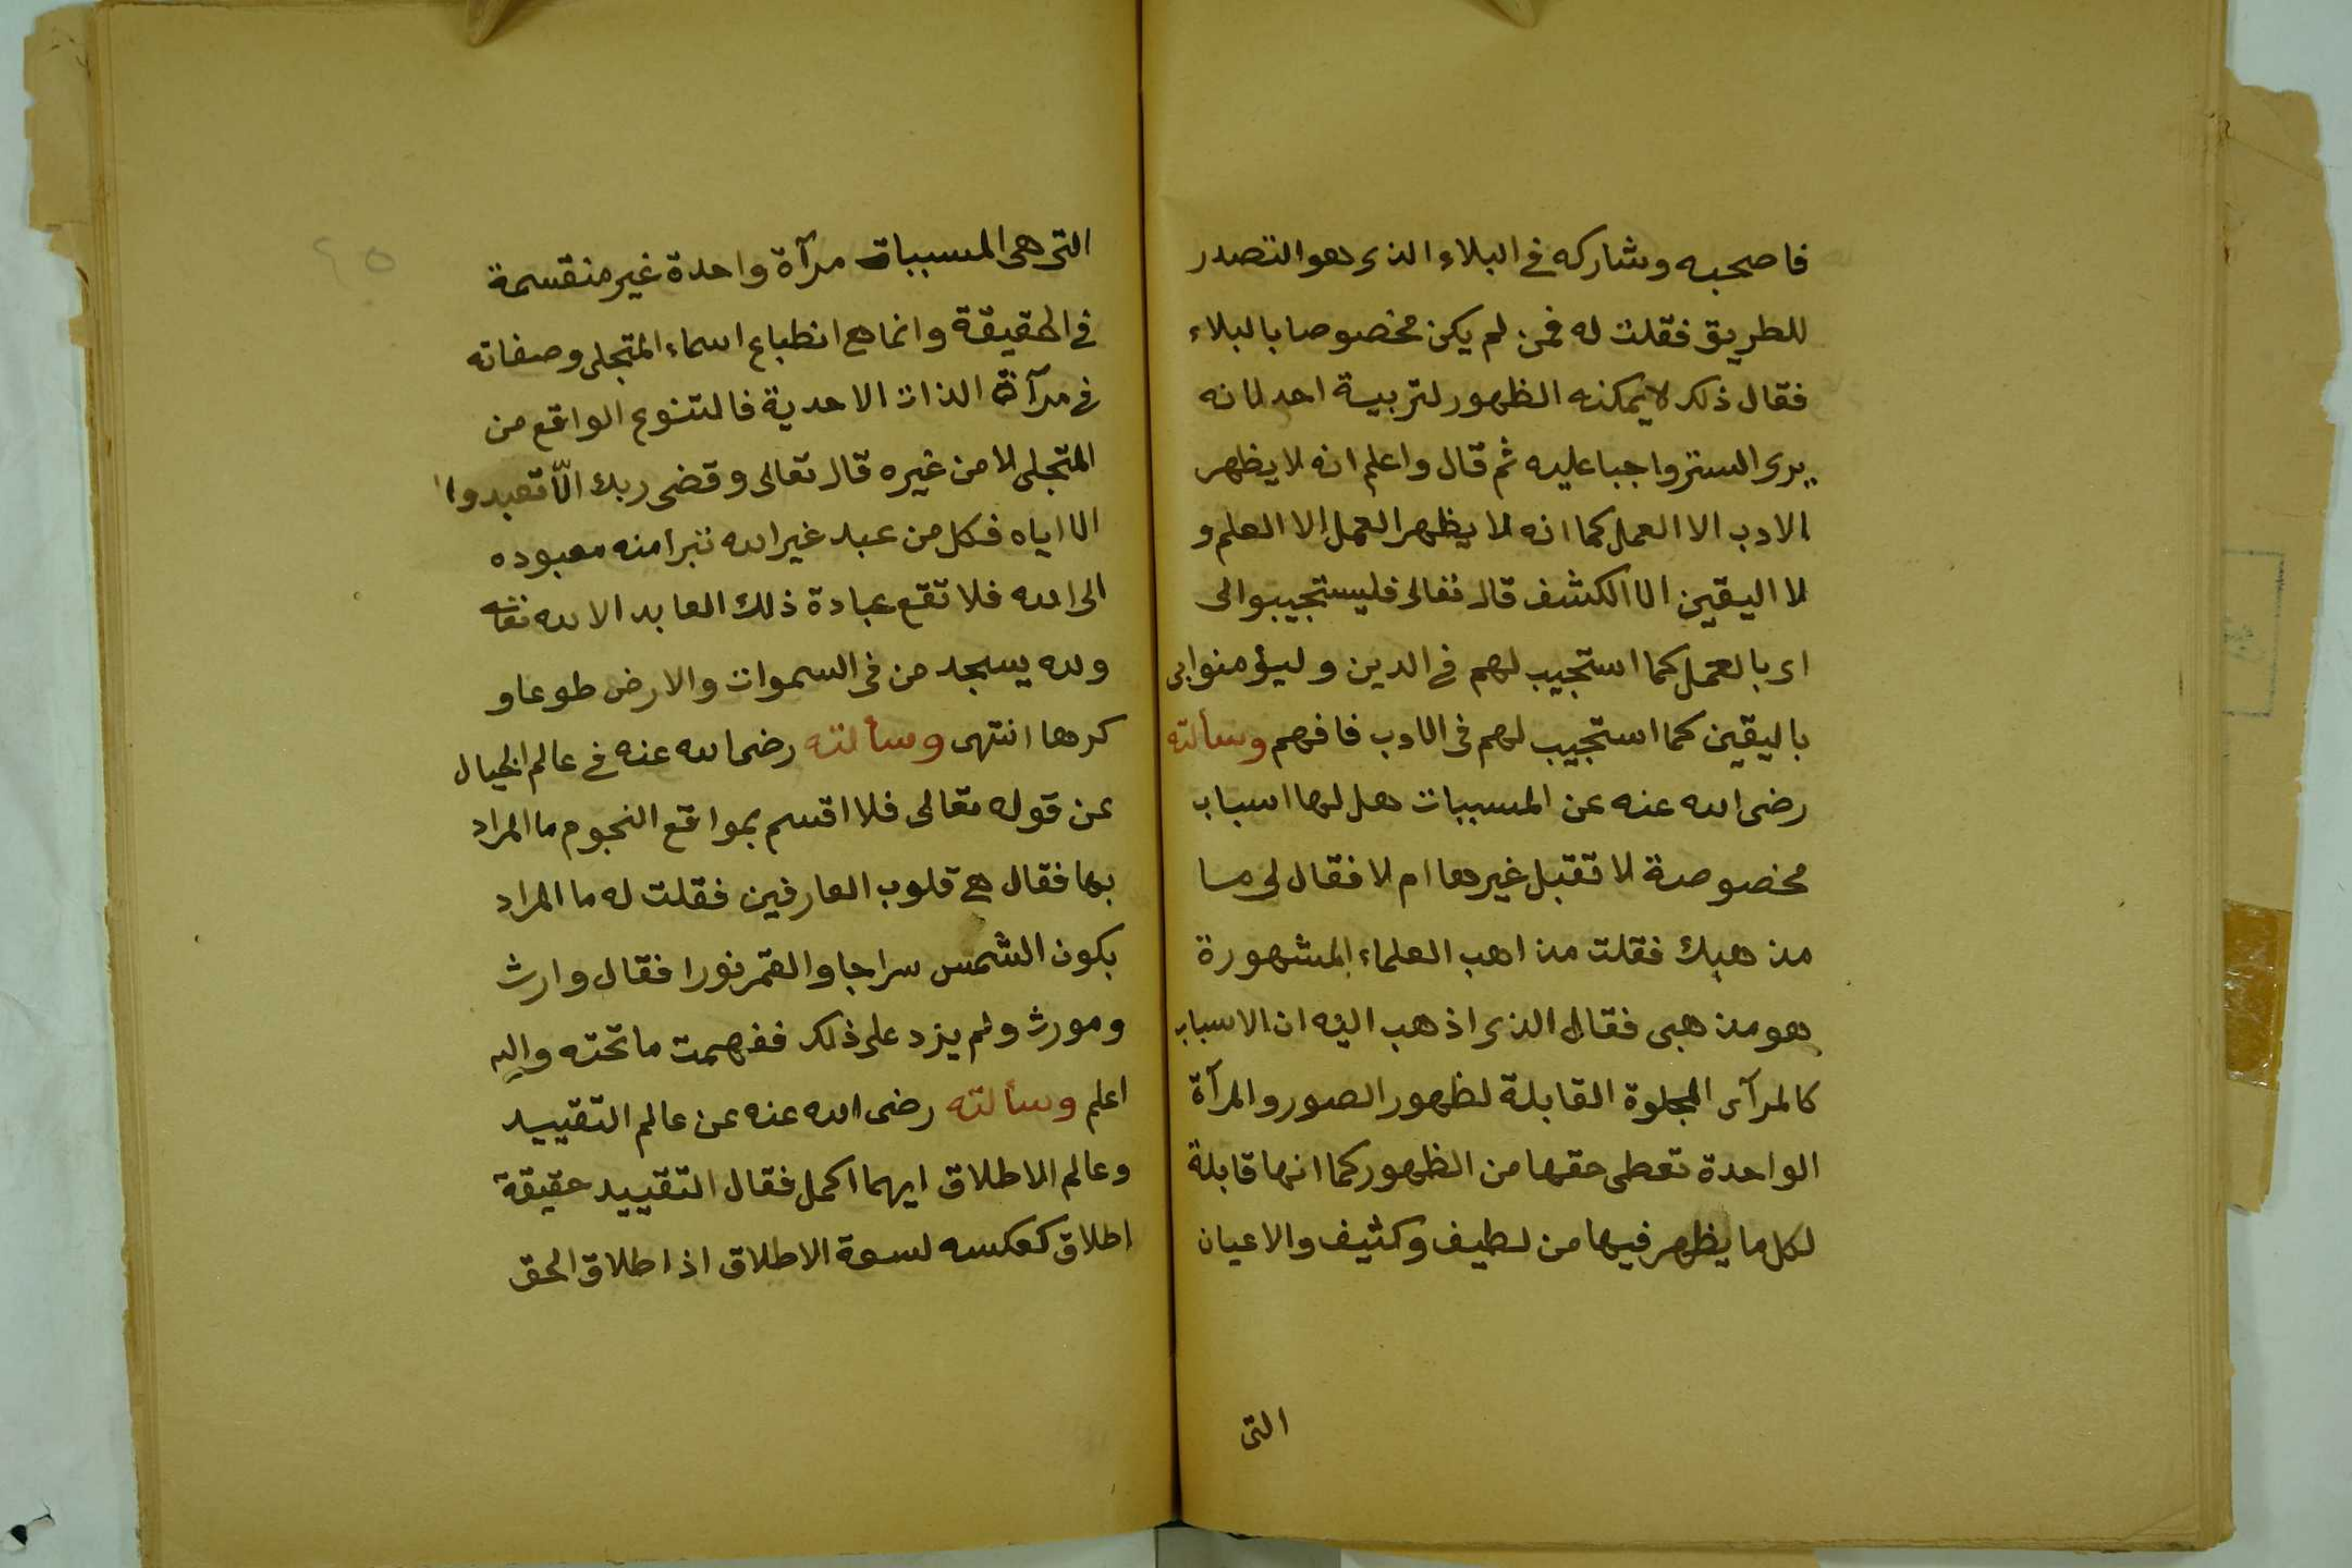 فاصحبه وشاركه في البلاء الذى هو التصدر
للطريق فقلت له فمن لم يكن مخصوصا بالبلاء
فقال ذلك لا يمكنه الظهور لتربية احد لانه
يرى الستر واجبا عليه ثم قال واعلم انه لا يظهر
الادب الا العمل كما انه لا يظهر العمل الا العلم و
لا اليقين الا الكشف قال تعالى فليستجيبوا لى
اى بالعمل كما استجيب لهم في الدين وليؤمنوا بى
باليقين كما استجيب لهم فى الادب فافهم وسألته
رضى الله عنه عن المسببات هل لها اسباب
مخصوصة لا تقبل غيرها ام لا فقال لى ما
مذهبك فقلت مذاهب العلماء المشهورة
هو مذهبى فقال الذى اذهب اليه ان الاسباب
كالمرآى المجلوة القابلة لظهور الصور والمرآة
الواحدة تعطى حقها من الظهور كما انها قابلة
لكل ما يظهر فيها من لطيف وكثيف والاعيان
التى
٤٥
التى هى المسببات مرآة واحدة غير منقسمة
في الحقيقة وانما هى انطباع اسماء المتجلى وصفاته
في مرآة الذات الاحدية فالتنوع الواقع من
المتجلى لا من غيره قال تعالى وقضى ربك الّا تعبدوا
الا اياه فكل من عبد غير الله تبرا منه معبوده
الى الله فلا تقع عبادة ذلك العابد الا لله تعالى
ولله يسجد من فى السموات والارض طوعا و
كرها انتهى وسألته رضى الله عنه في عالم الخيال
عن قوله تعالى فلا اقسم بمواقع النجوم ما المراد
بها فقال هى قلوب العارفين فقلت له ما المراد
بكون الشمس سراجا والقمر نورا فقال وارث
ومورث ولم يزد على ذلك ففهمت ما تحته والله
اعلم وسألته رضى الله عنه عن عالم التقييد
وعالم الاطلاق ايهما اكمل فقال التقييد حقيقة
اطلاق كعكسه لسعة الاطلاق اذ اطلاق الحق